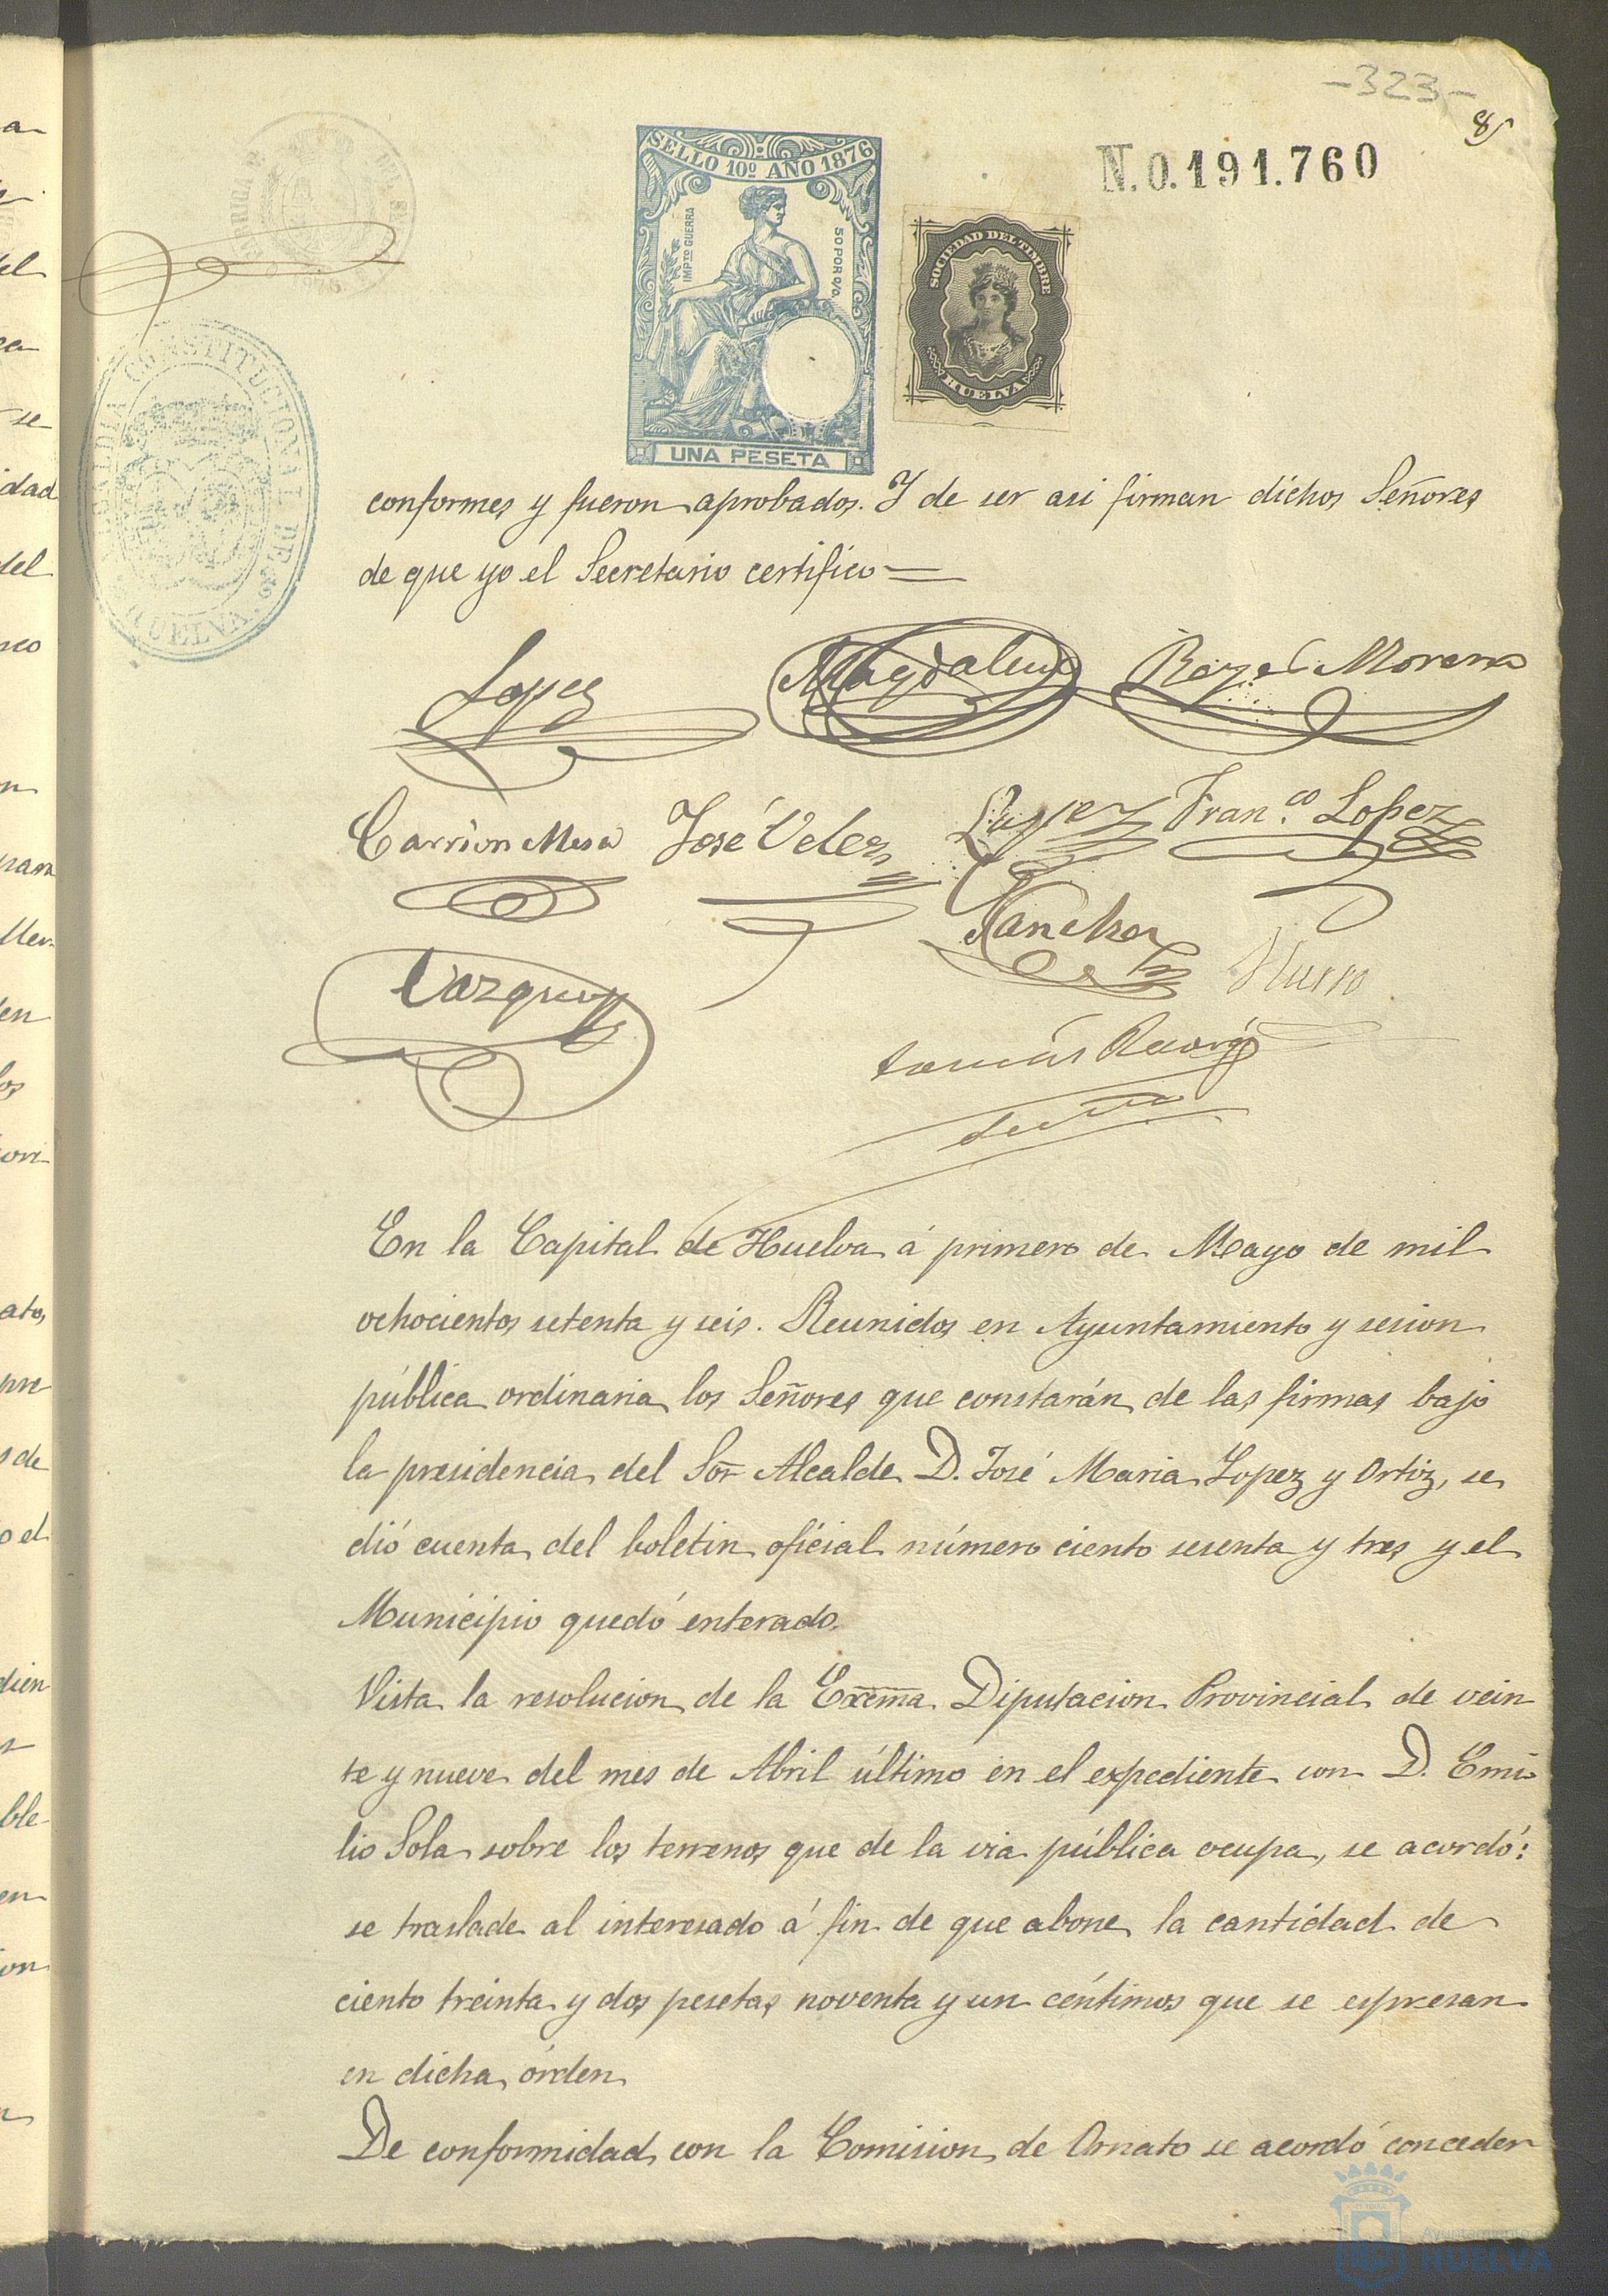 -323-
8
N.0.191.760
SELLO 10º AÑO 1876
IMPTO GUERRA
50 POR 0/0
UNA PESETA
SOCIEDAD DEL TIMBRE
HUELVA
ALCALDIA CONSTITUCIONAL DE HUELVA.
conformes y fueron aprobados. Y de ser asi firman dichos Señores
de que yo el Secretario certifico=
Lopez Magdalena Moreno
Carrion Mesa José Velez Lopez Fran.co Lopez
Sanchez
Vazquez
Tomás
En la Capital de Huelva á primero de Mayo de mil
ochocientos setenta y seis. Reunidos en Ayuntamiento y sesion
pública ordinaria los Señores que constarán de las firmas bajo
la presidencia del Sor Alcalde D. José Maria Lopez y Ortiz, se
dió cuenta del boletin oficial número ciento sesenta y tres y el
Municipio quedó enterado.
Vista la resolucion de la Excma Diputacion Provincial de vein
te y nueve del mes de Abril último en el expediente con D. Emi
lio Sola sobre los terrenos que de la via pública ocupa, se acordó:
se traslade al interesado á fin de que abone la cantidad de
ciento treinta y dos pesetas noventa y un céntimos que se espresan
en dicha órden
De conformidad con la Comision de Ornato se acordó conceder
Ayuntamiento de
HUELVA